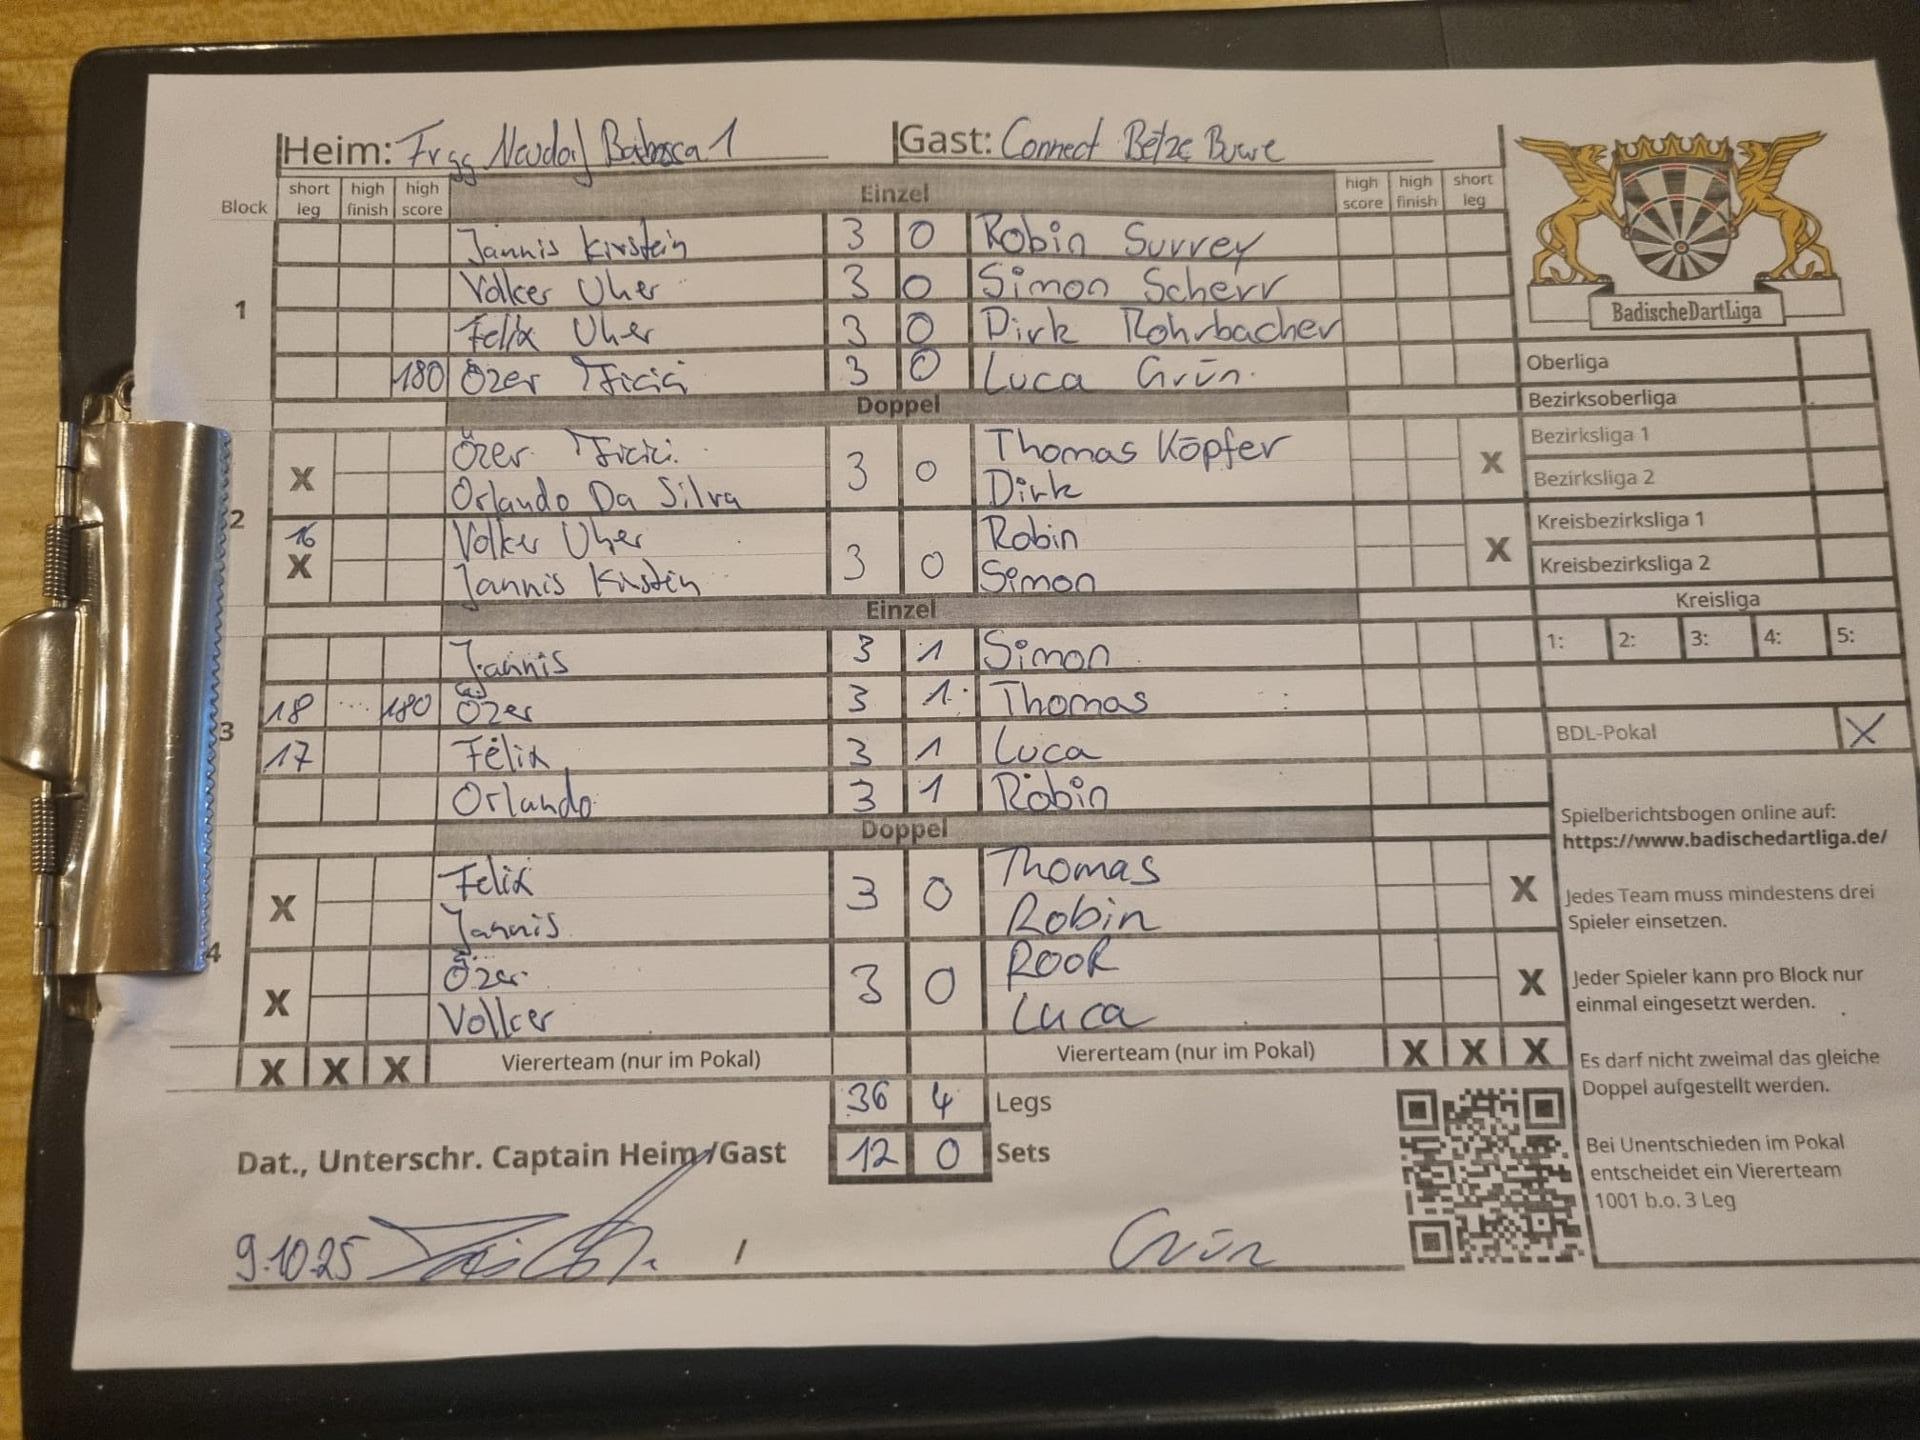 Heim: Frgg Neudorf Babosca 1 Gast: Connect Betze Buwe
Block short leg high finish high score Einzel high score high finish short leg
Jannis Kirstein 3 0 Robin Surrey
1 Volker Uher 3 0 Simon Scherr
Felix Uher 3 0 Dirk Rohrbacher
180 Özer Ficici 3 0 Luca Grün
Doppel
Özer Ficici Thomas Köpfer
X 3 0 X
Orlando Da Silva Dirk
2
16 Volker Uher Robin
X 3 0 X
Jannis Kirstein Simon
Einzel
Jannis 3 1 Simon
18 180 Özer 3 1 Thomas
3
17 Felix 3 1 Luca
Orlando 3 1 Robin
Doppel
Felix Thomas
X 3 0 X
Jannis Robin
4
Özer
X 3 0 X
Volker Luca
X X X Viererteam (nur im Pokal) Viererteam (nur im Pokal) X X X
36 4 Legs
12 0 Sets
Dat., Unterschr. Captain Heim/Gast
9.10.25 / Grün
BadischeDartLiga
Oberliga
Bezirksoberliga
Bezirksliga 1
Bezirksliga 2
Kreisbezirksliga 1
Kreisbezirksliga 2
Kreisliga
1: 2: 3: 4: 5:
BDL-Pokal X
Spielberichtsbogen online auf:
https://www.badischedartliga.de/
Jedes Team muss mindestens drei
Spieler einsetzen.
Jeder Spieler kann pro Block nur
einmal eingesetzt werden.
Es darf nicht zweimal das gleiche
Doppel aufgestellt werden.
Bei Unentschieden im Pokal
entscheidet ein Viererteam
1001 b.o. 3 Leg